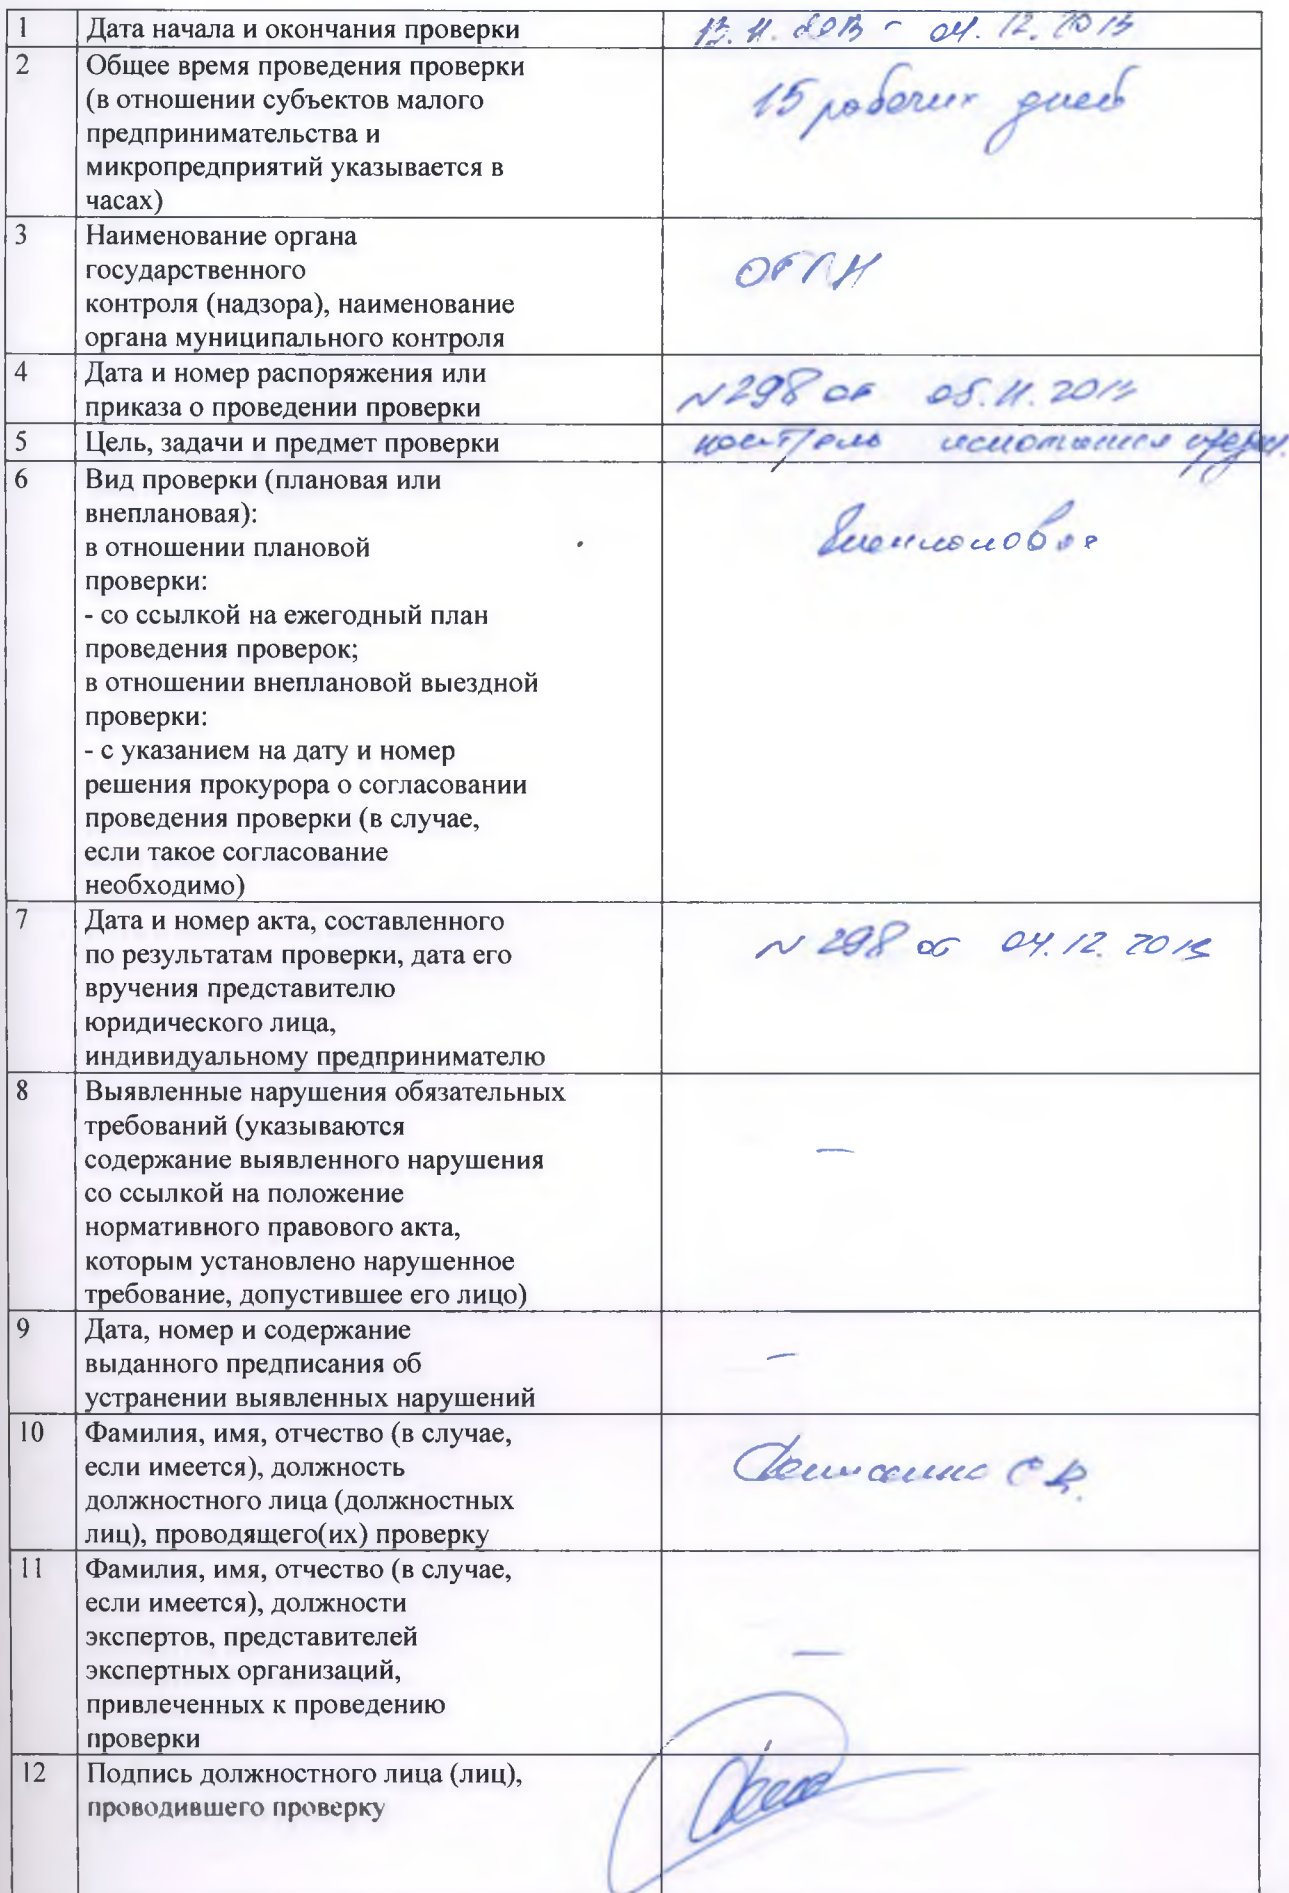 1 Дата начала и окончания проверки 13.11.2013 - 04.12.2013
2 Общее время проведения проверки
(в отношении субъектов малого
предпринимательства и
микропредприятий указывается в
часах)
15 рабочих дней
3 Наименование органа
государственного
контроля (надзора), наименование
органа муниципального контроля
4 Дата и номер распоряжения или
приказа о проведении проверки
N298 от 05.11.2013
5 Цель, задачи и предмет проверки контроль исполнения
6 Вид проверки (плановая или
внеплановая):
в отношении плановой
проверки:
- со ссылкой на ежегодный план
проведения проверок;
в отношении внеплановой выездной
проверки:
- с указанием на дату и номер
решения прокурора о согласовании
проведения проверки (в случае,
если такое согласование
необходимо)
Внеплановая
7 Дата и номер акта, составленного
по результатам проверки, дата его
вручения представителю
юридического лица,
индивидуальному предпринимателю
N 298 от 04.12.2013
8 Выявленные нарушения обязательных
требований (указываются
содержание выявленного нарушения
со ссылкой на положение
нормативного правового акта,
которым установлено нарушенное
требование, допустившее его лицо)
–
9 Дата, номер и содержание
выданного предписания об
устранении выявленных нарушений
–
10 Фамилия, имя, отчество (в случае,
если имеется), должность
должностного лица (должностных
лиц), проводящего(их) проверку
11 Фамилия, имя, отчество (в случае,
если имеется), должности
экспертов, представителей
экспертных организаций,
привлеченных к проведению
проверки
–
12 Подпись должностного лица (лиц),
проводившего проверку